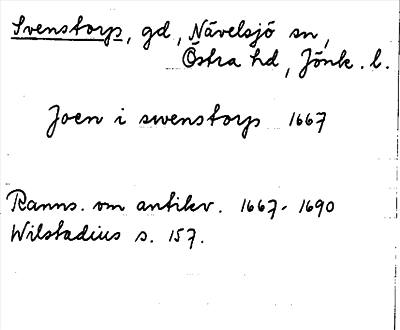 Svenstorp, gd, Nävelsjö sn,
Östra hd, Jönk. l.
Joen i swenstorp 1667
Ranns. om antikv. 1667-1690
Wilstadius s. 157.